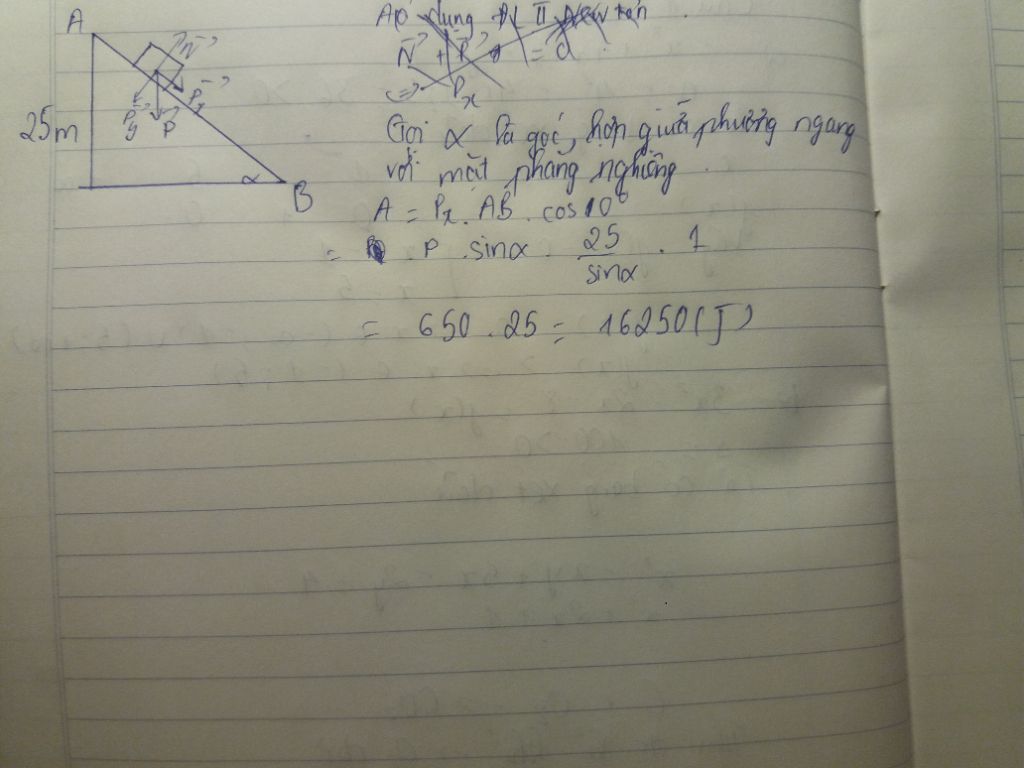 A
25m
N
Px
Py
P
α
B
Áp dụng ĐL II Newtơn
N + P = a
<=> Px
Gọi α là góc hợp giữa phương ngang
với mặt phẳng nghiêng.
A = Px. AB. cos10°
= P. sinα. 25/sinα . 1
= 650.25 = 16250(J)